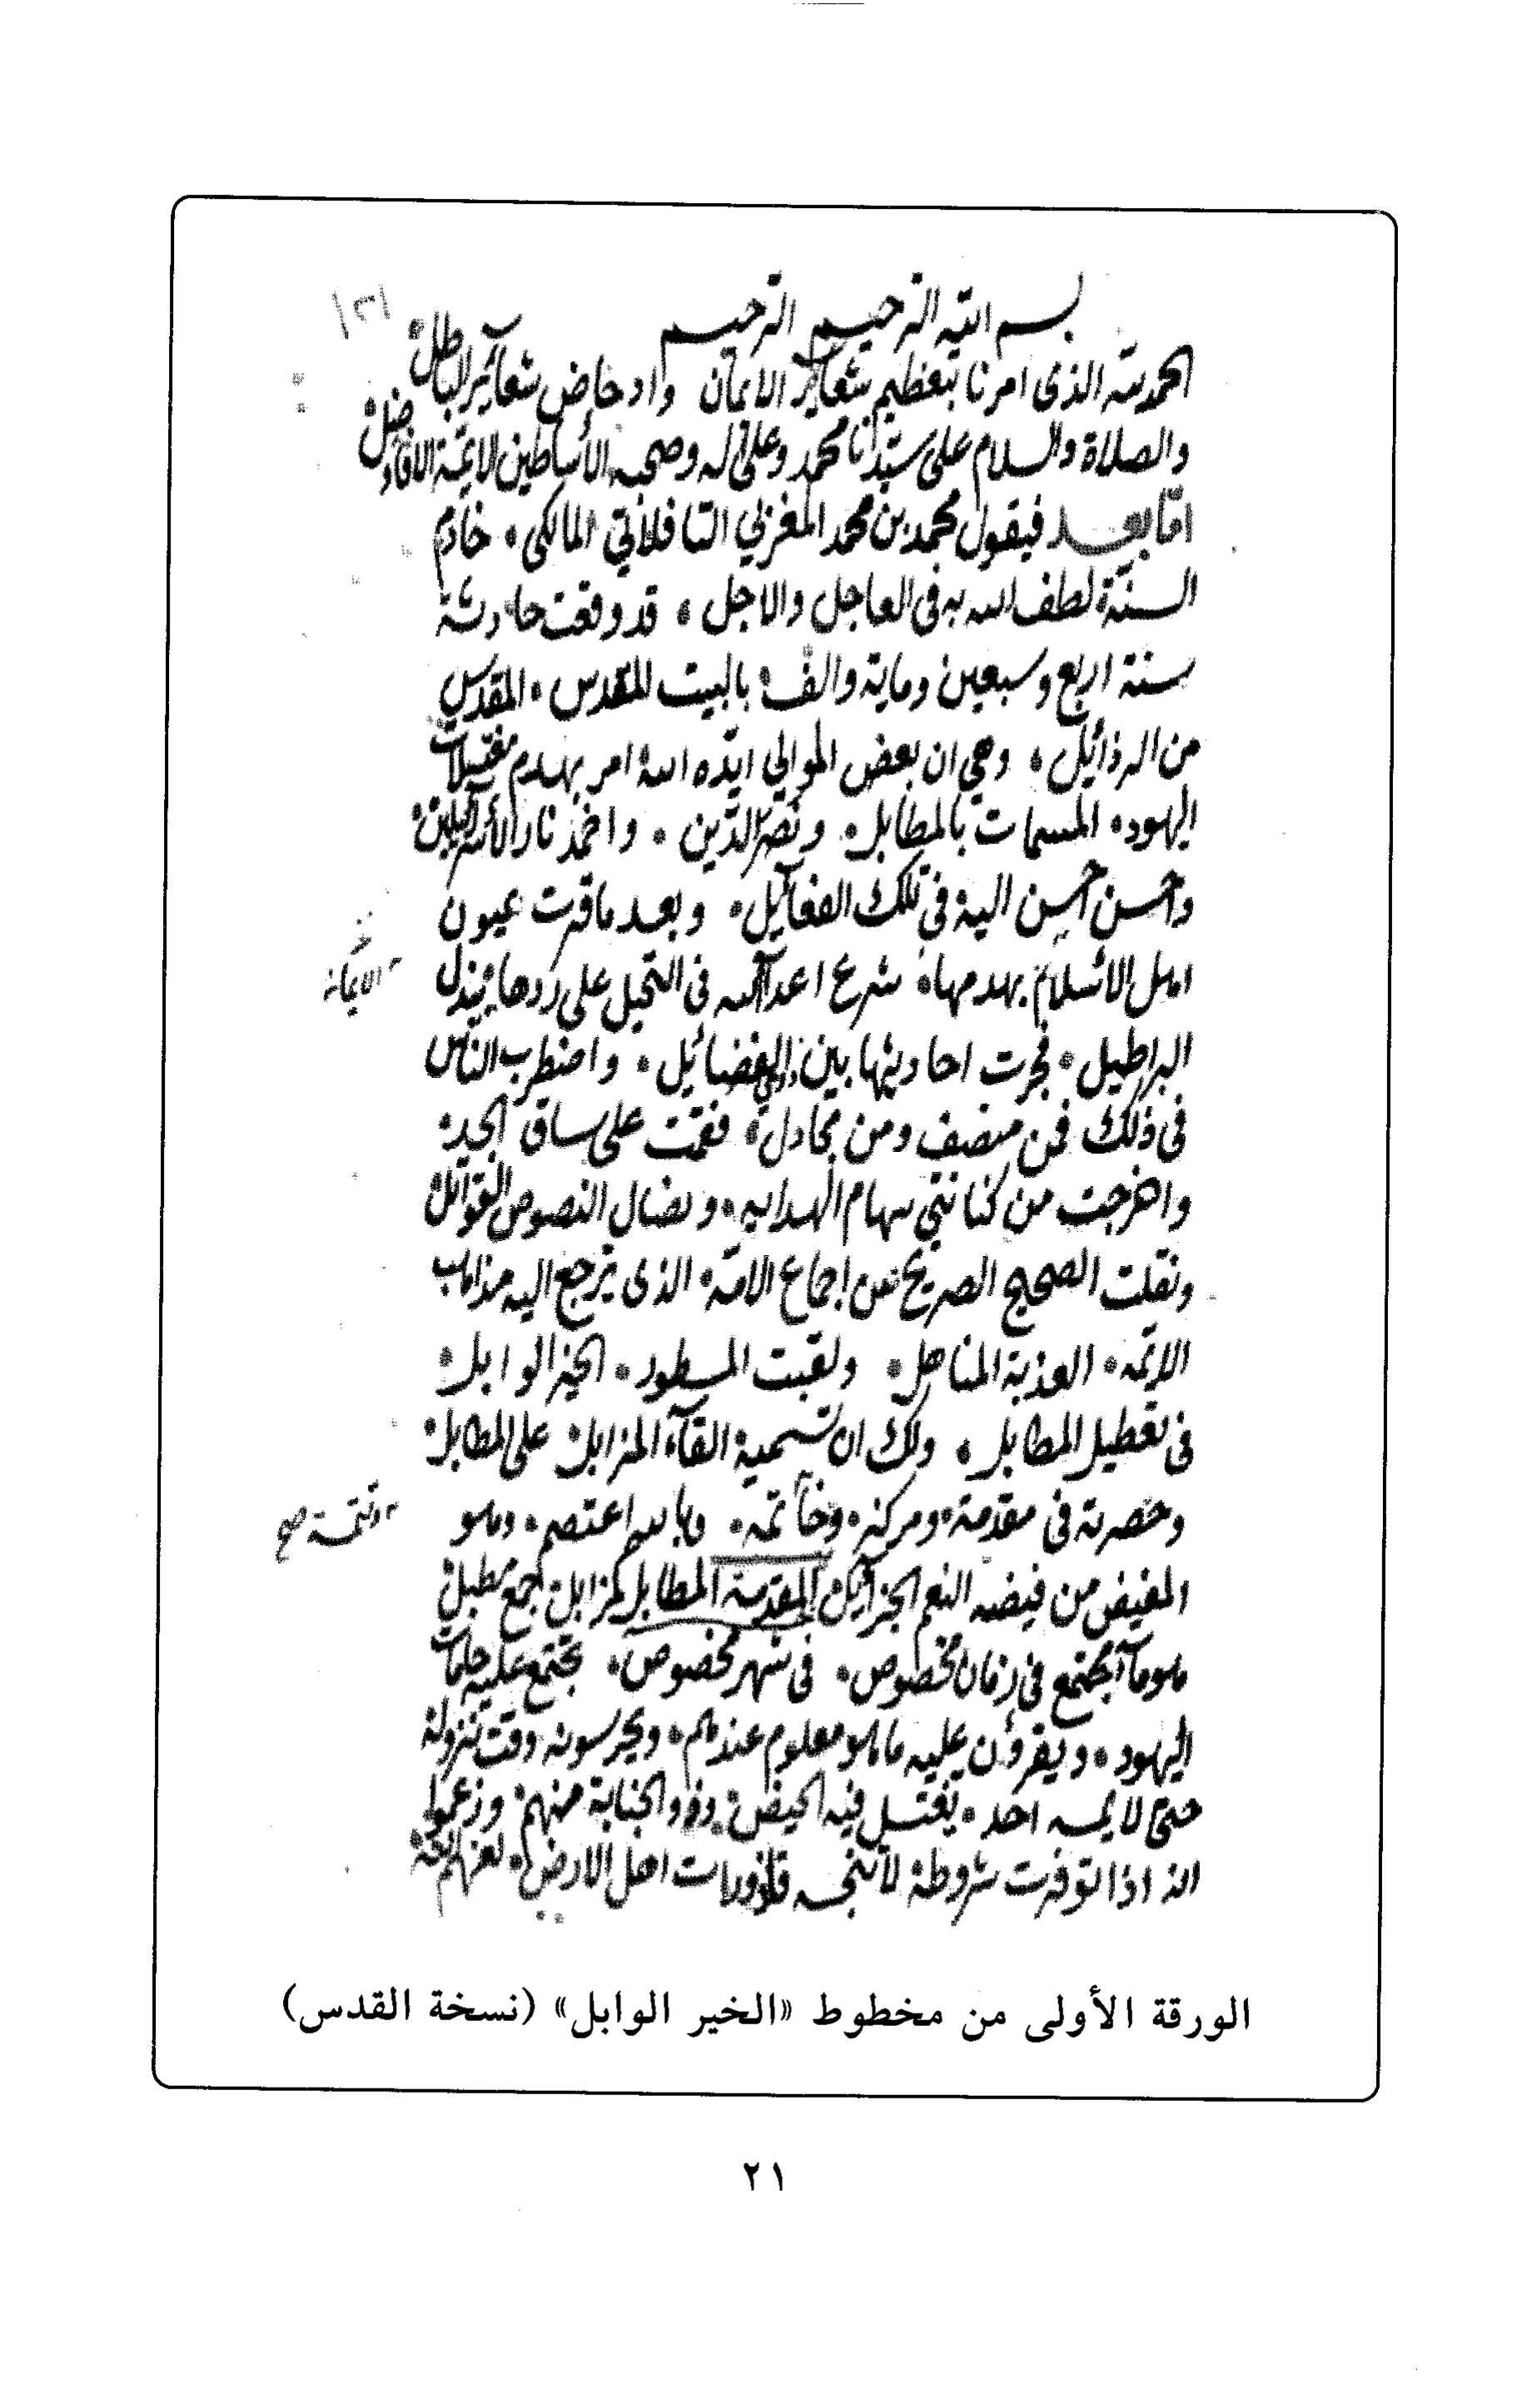 بسم الله الرحيم الرحيم
الحمد لله الذى امرنا بتعظيم شعاير الايمان وادحاض شعآير الباطل
والصلاة والسلام على سيدنا محمد وعلى اله وصحبه الأساطين الايمة الافاضل
امّا بعد فيقول محمد بن محمد المغربي التافلاتي المالكى خادم
السنة لطف الله به فى العاجل والاجل قد وقعت حادثة
سنة اربع وسبعين وماية والف بالبيت المقدس المقدس
من الرذائل وهي ان بعض الموالي ايّده الله امر بهدم
اليهود المسمات بالمطابل ونصر الدّين واخمذ نار
واحسن احسن اليه فى تلك الفعآيل وبعد ما قرت عيون
اهل الاسلام بهدمها شرع اعدآ الله فى التحيل على ردها ببذل
الايمانه
البراطيل فجرت احاديثها بين اولي الفضائيل واضطرب الناس
فى ذلك فمن منصف ومن مجادل فقمت على ساق الجد
واخرجت من كنانتي سهام الهدايه ونضال النصوص القواتل
ونقلت الصحيح الصريح من إجماع الامّه الذى يرجع اليه مذاهب
الايمّه العذبة المناهل ولقبت المسطور الخير الوابل
فى تعطيل المطابل ولك ان تسميه القآء المزابل على المطابل
وحصرته فى مقدمة ومركز وخاتمه وبالله اعتصم وهو
وتتمة صح
المفيض من فيضه النعم الجزآيل المقدمة المطابل كمزابل جمع مطبل
هو مآ يجتمع في زمان مخصوص فى شهر مخصوص يجتمع عليه
اليهود ويقرؤن عليه ما هو معلوم عندهم ويحرسونه وقت نزوله
حتى لا يمسه احد يغتسل فيه الحيض وذوو الجنابة منهم وزعموا
انه اذا توفرت شروطه لا تنجسه قاذورات اهل الارض لعنهم الله
الورقة الأولى من مخطوط «الخير الوابل» (نسخة القدس)
٢١